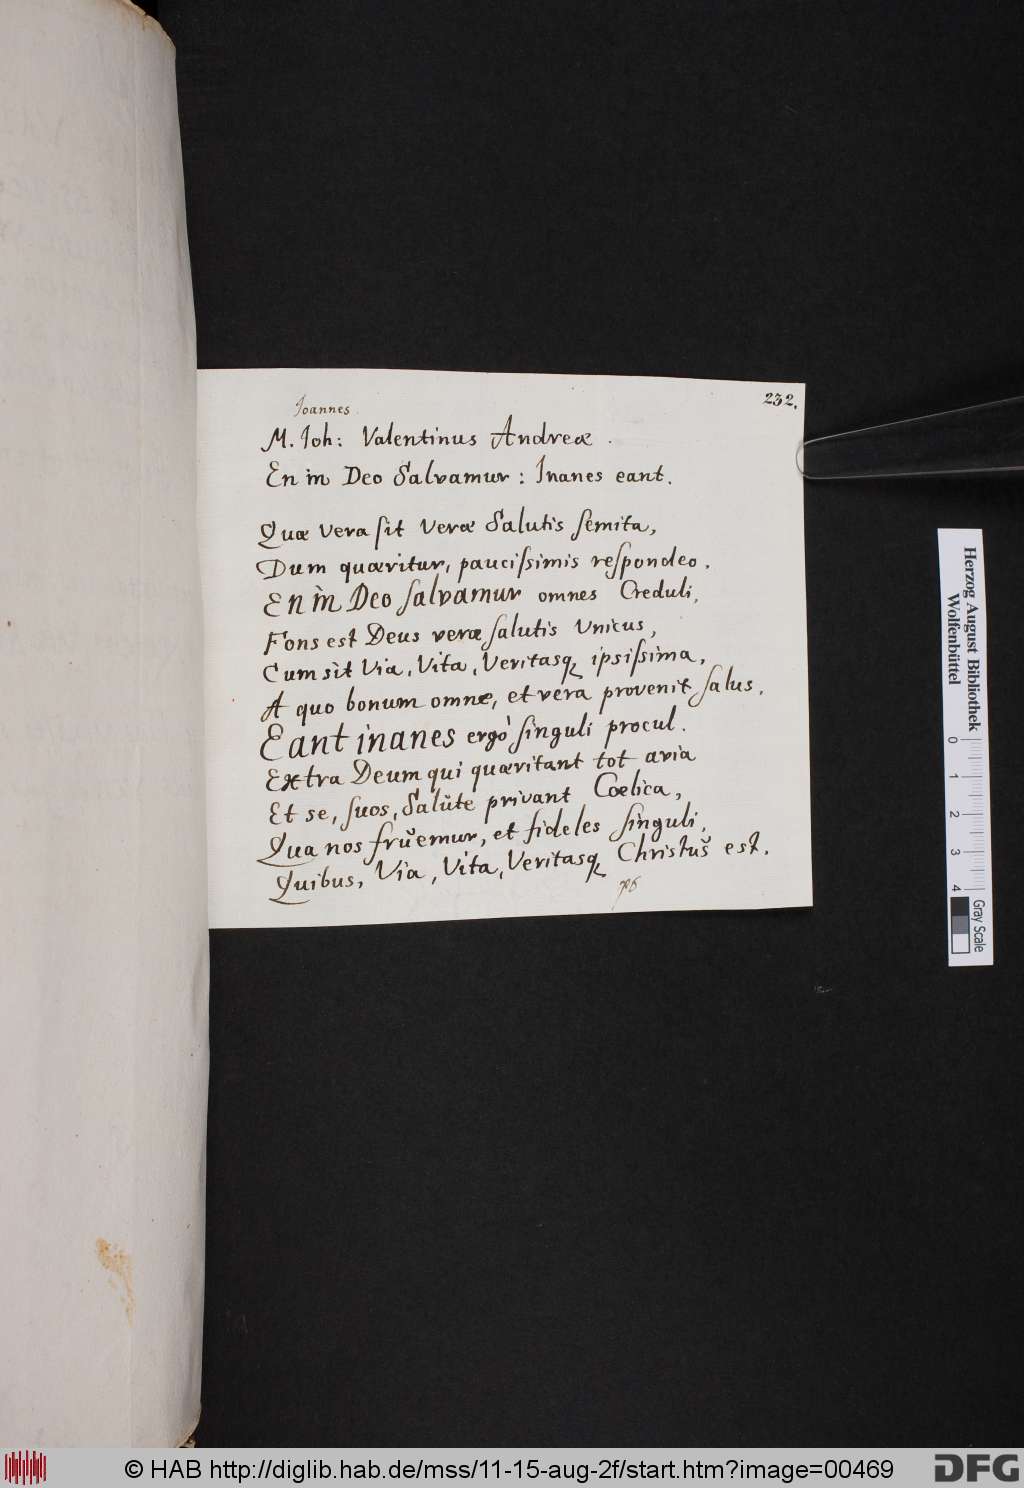 232.
Joannes.
M. Joh: Valentinus Andreæ.
En in Deo Salvamur: Inanes eant.
Quæ vera sit veræ Salutis semita,
Dum quæritur, paucissimis respondeo.
En in Deo salvamur omnes Creduli,
Fons est Deus veræ salutis Unicus,
Cum sit Via, Vita, Veritasq ipsissima,
A quo bonum omne, et vera provenit salus.
Eant inanes ergò singuli procul.
Extra Deum qui quæritant tot avia
Et se, suos, Salŭte privant Coelica,
Qua nos frŭemur, et fideles singuli,
Quibus, Via, Vita, Veritasq Christŭs est.
Herzog August Bibliothek
Wolfenbüttel
0 1 2 3 4
Gray Scale
© HAB http://diglib.hab.de/mss/11-15-aug-2f/start.htm?image=00469
DFG